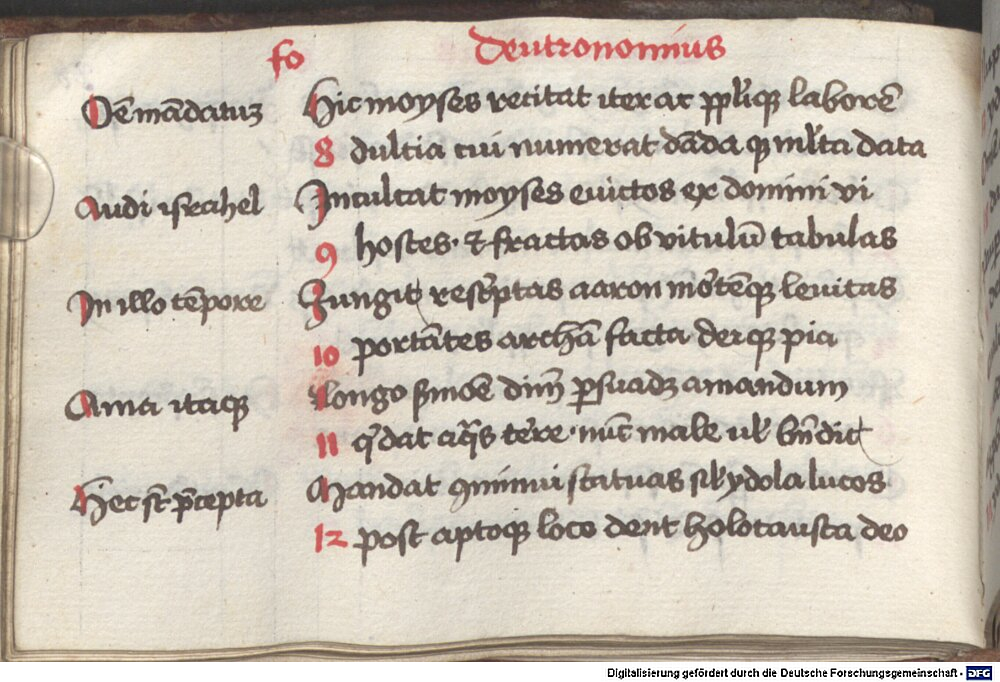 fo Deutronomius
Oē mādatuʒ Hic moyses recitat iter ac pplīqꝫ laborē
8 dultia cui numerat dāda qꝫ mlta data
Audi israhel Inculcat moyses euictos ex domini vi
9 hostes · & fractas ob vitulū tabulas
In illo tēpore Iungit rescptas aaron mo͛tēqꝫ leuitas
10 portātes archā facta derqꝫ pia
Ama itaqꝫ Longo smōe dīm ꝑsuadꝫ amandum
11 qͥ dat aqͣs tere · nūc male uł bn̄dic
Hec st p̄cepta Mandat ꝯminui statuas sił ydola lucos
12 post aptoqꝫ loco dent holocausta deo
Digitalisierung gefördert durch die Deutsche Forschungsgemeinschaft - DFG